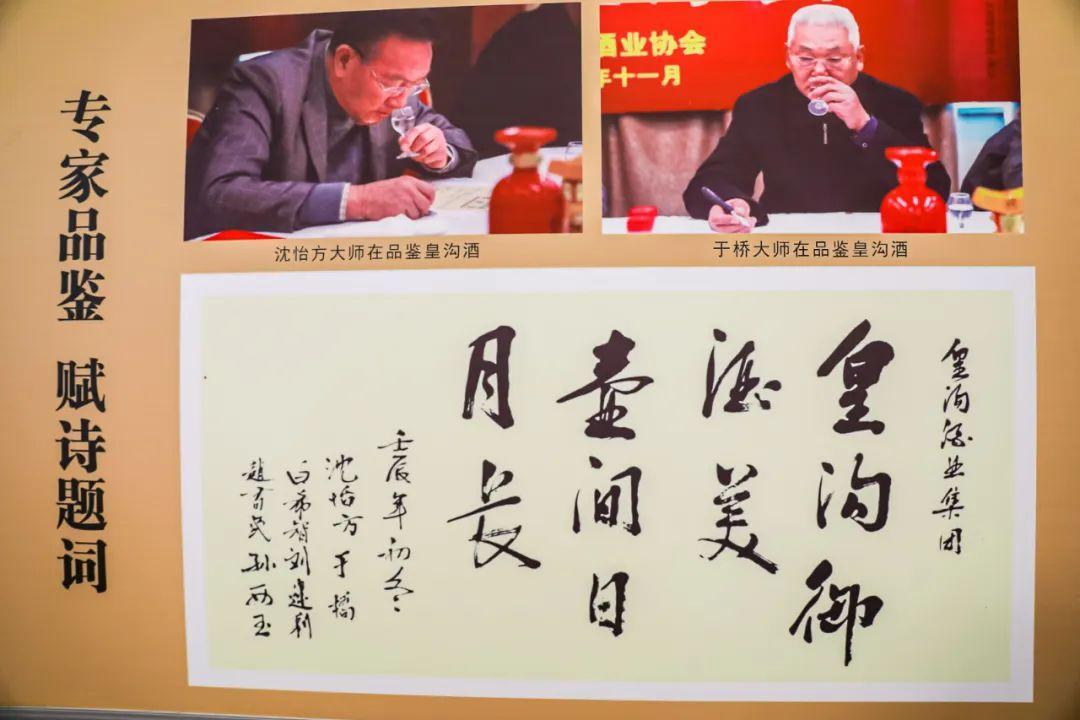 专家品鉴 赋诗题词
酒业协会
年十一月
沈怡方大师在品鉴皇沟酒
于桥大师在品鉴皇沟酒
皇沟酒业集团
皇沟御
酒美
壶间日
月长
壬辰年初冬
沈怡方 于桥
白希智 刘建利
赵书民 孙西玉